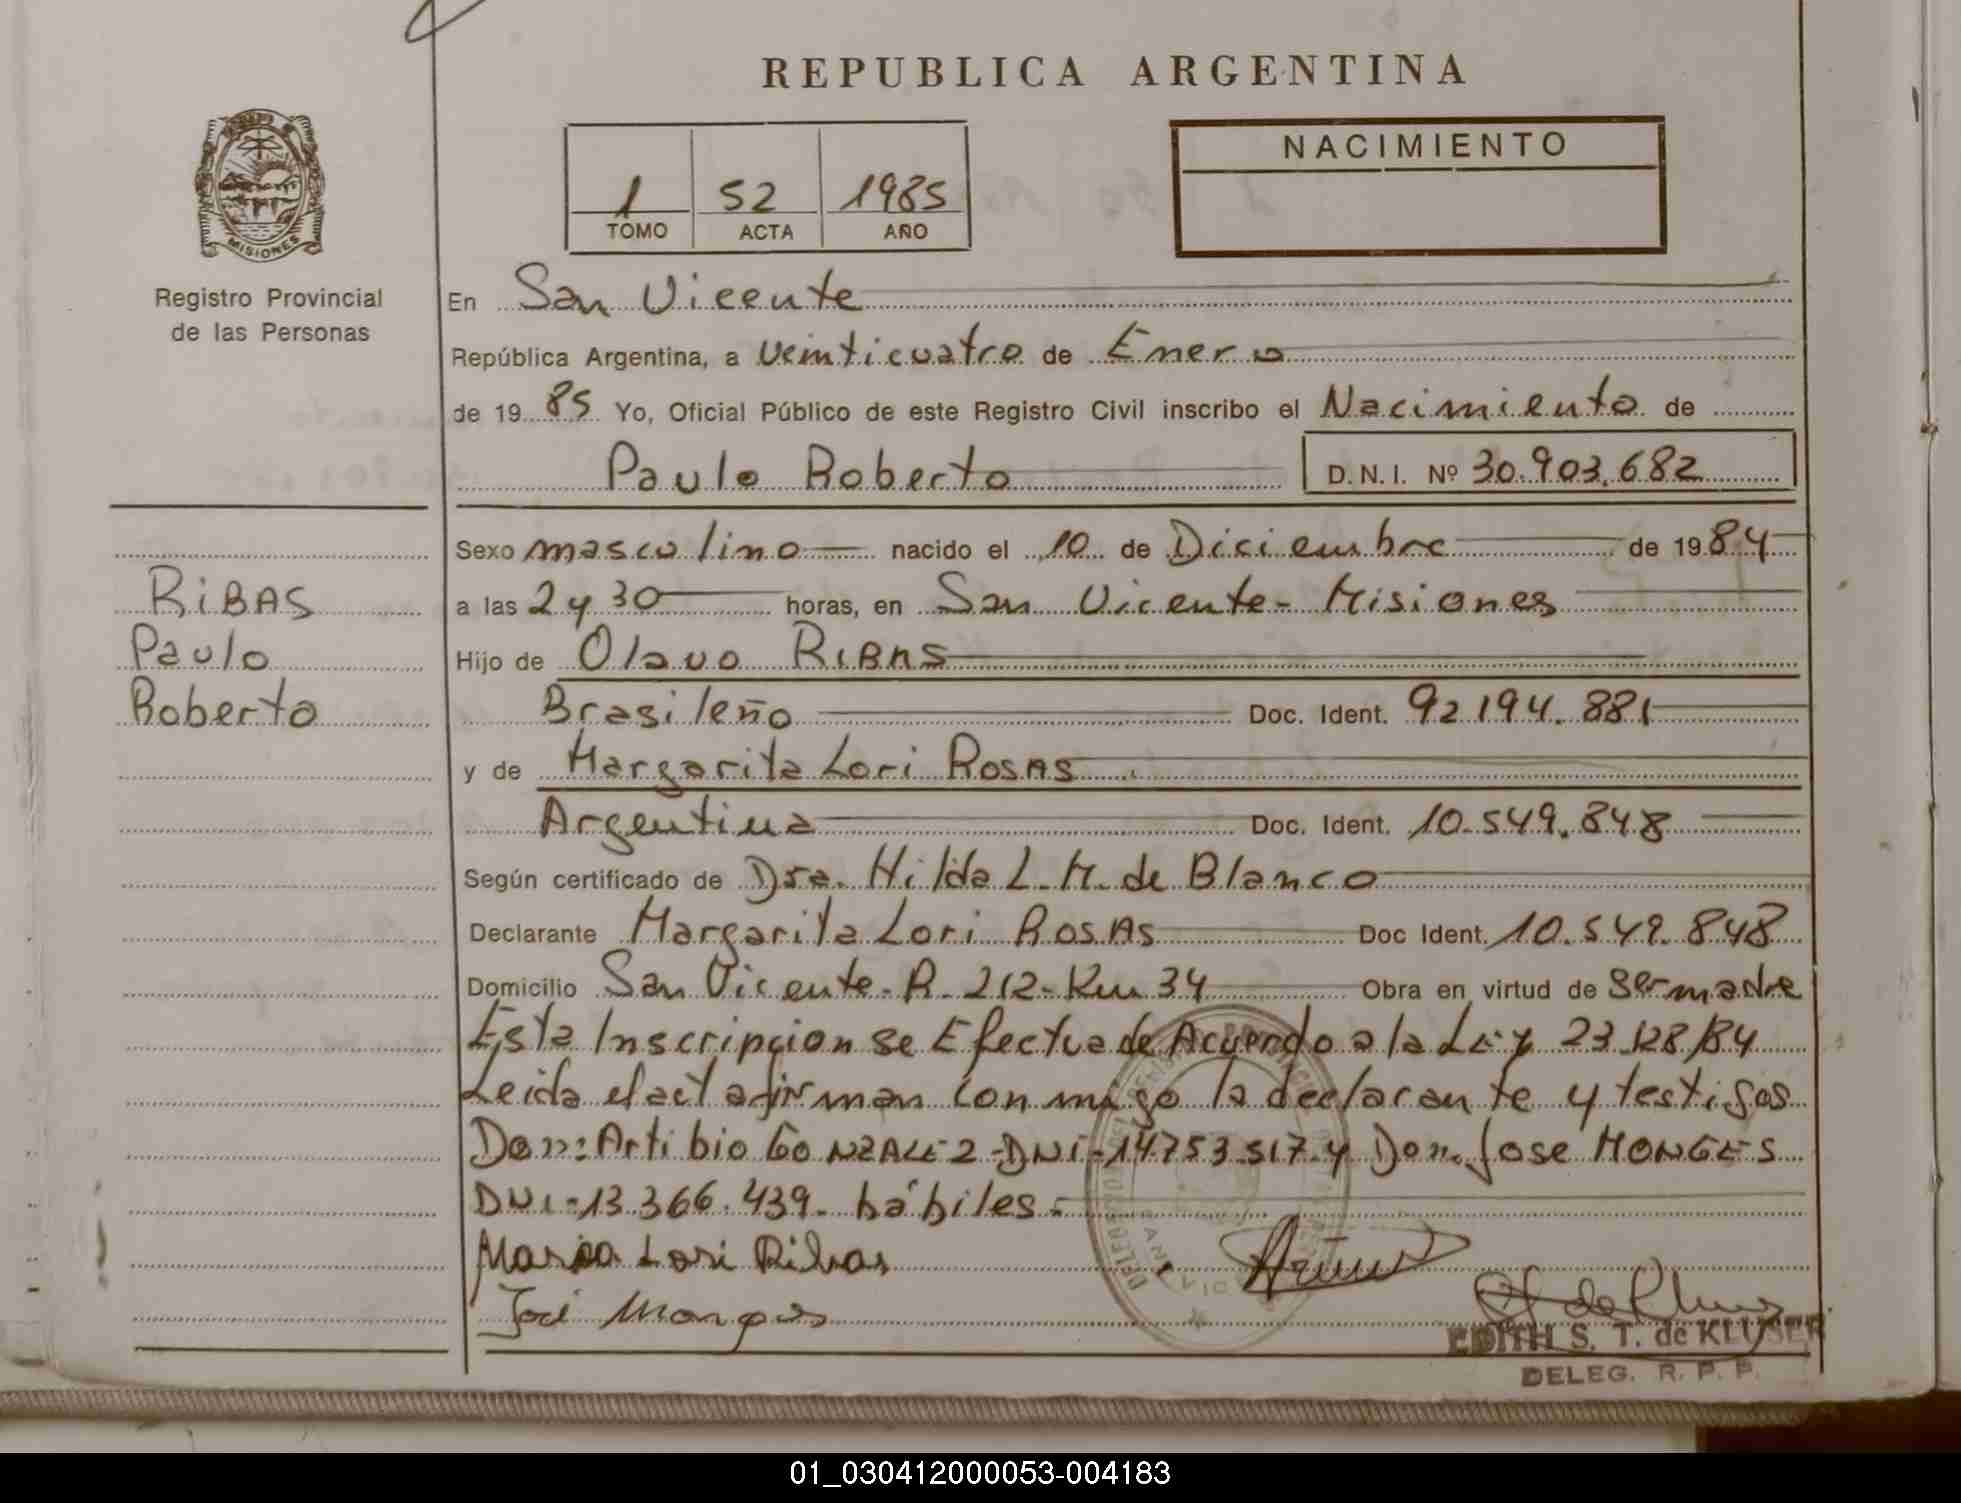 REPUBLICA ARGENTINA
MISIONES
Registro Provincial
de las Personas
1 52 1985
TOMO ACTA AÑO
NACIMIENTO
En San Vicente
República Argentina, a veinticuatro de Enero
de 19 85 Yo, Oficial Público de este Registro Civil inscribo el Nacimiento de
Paulo Roberto D.N.I. Nº 30.903.682
RiBAS
Paulo
Roberto
Sexo masculino nacido el 10 de Diciembre de 19 84
a las 2 y 30 horas, en San Vicente - Misiones
Hijo de Olavo RiBAS
Brasileño Doc. Ident. 92.194.881
y de Margarita Lori ROSAS
Argentina Doc. Ident. 10.549.848
Según certificado de Dra. Hilda L. M. de Blanco
Declarante Margarita Lori ROSAS Doc Ident. 10.549.848
Domicilio San Vicente - R. 212 - Km 34 Obra en virtud de ser madre
Esta Inscripcion se Efectua de Acuerdo a la Ley 23.128/84
Leida el act a firman conmigo la declarante y testigos
Don: Artibio GONZALEZ - DNi - 14.753.517 y Don Jose MONGES
DNi - 13.366.439. hábiles.-
Maria Lori Ribas
José Monges
EDITH S. T. de KLUSER
DELEG. R. P. P.
01_030412000053-004183